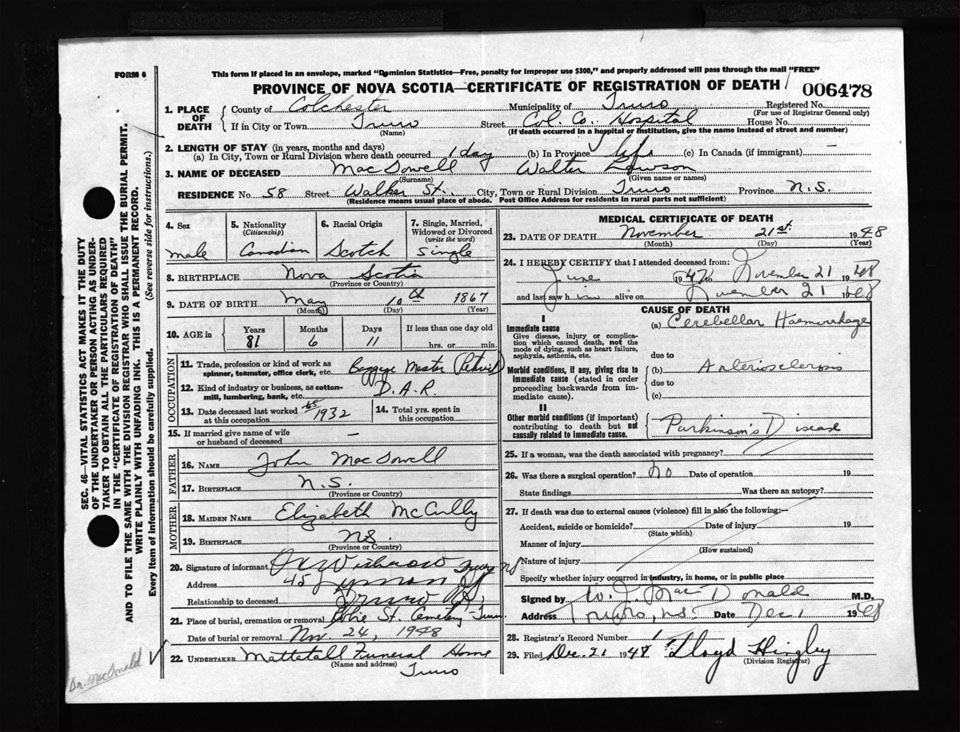 FORM 6
This form if placed in an envelope, marked "Dominion Statistics—Free, penalty for improper use $300," and properly addressed will pass through the mail "FREE"
PROVINCE OF NOVA SCOTIA—CERTIFICATE OF REGISTRATION OF DEATH
006478
1. PLACE OF DEATH
County of Colchester Municipality of Truro Registered No.
(For use of Registrar General only)
If in City or Town Truro Street Col. Co. Hospital House No.
(Name) (If death occurred in a hospital or institution, give the name instead of street and number)
2. LENGTH OF STAY (in years, months and days)
(a) In City, Town or Rural Division where death occurred 1 day (b) In Province life (c) In Canada (if immigrant) —
3. NAME OF DECEASED MacDowell Walter
(Surname) (Given name or names)
RESIDENCE No. 58 Street Walker St. City, Town or Rural Division Truro Province N.S.
(Residence means usual place of abode. Post Office Address for residents in rural parts not sufficient)
4. Sex
male
5. Nationality
(Citizenship)
Canadian
6. Racial Origin
Scotch
7. Single, Married, Widowed or Divorced
(write the word)
Single
8. BIRTHPLACE Nova Scotia
(Province or Country)
9. DATE OF BIRTH May 10th 1867
(Month) (Day) (Year)
10. AGE in
Years Months Days If less than one day old
81 6 11 hrs. or min.
OCCUPATION
11. Trade, profession or kind of work as spinner, teamster, office clerk, etc. Baggage Master (Retired)
12. Kind of industry or business, as cotton-mill, lumbering, bank, etc. D.A.R.
13. Date deceased last worked at this occupation 1932
14. Total yrs. spent in this occupation
15. If married give name of wife or husband of deceased —
FATHER
16. NAME John MacDowell
17. BIRTHPLACE N.S.
(Province or Country)
MOTHER
18. MAIDEN NAME Elizabeth McCully
19. BIRTHPLACE N.S.
(Province or Country)
20. Signature of informant
Address 45 Lyman St
Relationship to deceased
21. Place of burial, cremation or removal St. Cemetery Truro
Date of burial or removal Nov. 24, 1948
22. UNDERTAKER Mattatall Funeral Home
(Name and address)
Truro
MEDICAL CERTIFICATE OF DEATH
23. DATE OF DEATH November 21st 1948
(Month) (Day) (Year)
24. I HEREBY CERTIFY that I attended deceased from:
June 1947 to November 21 1948
and last saw him alive on November 21 1948
CAUSE OF DEATH
I
Immediate cause
Give disease, injury or complication which caused death, not the mode of dying, such as heart failure, asphyxia, asthenia, etc.
(a) Cerebellar Haemorrhage
due to
Morbid conditions, if any, giving rise to immediate cause (stated in order proceeding backwards from immediate cause).
(b) Arteriosclerosis
due to
(c)
II
Other morbid conditions (if important) contributing to death but not causally related to immediate cause.
Parkinson's Disease
25. If a woman, was the death associated with pregnancy?
26. Was there a surgical operation? no Date of operation 19
State findings Was there an autopsy?
27. If death was due to external causes (violence) fill in also the following:—
Accident, suicide or homicide? Date of injury 19
(State which)
Manner of injury
(How sustained)
Nature of injury
Specify whether injury occurred in industry, in home, or in public place
Signed by W. J. MacDonald M.D.
Address Truro, N.S. Date Dec 1 1948
28. Registrar's Record Number
29. Filed Dec. 21 1948 Lloyd Hingley
(Division Registrar)
SEC. 46—VITAL STATISTICS ACT MAKES IT THE DUTY OF THE UNDERTAKER OR PERSON ACTING AS UNDERTAKER TO OBTAIN ALL THE PARTICULARS REQUIRED IN THE "CERTIFICATE OF REGISTRATION OF DEATH" AND TO FILE THE SAME WITH THE DIVISION REGISTRAR WHO SHALL ISSUE THE BURIAL PERMIT.
WRITE PLAINLY WITH UNFADING INK. THIS IS A PERMANENT RECORD.
Every item of information should be carefully supplied. (See reverse side for instructions.)
Dr. MacDonald